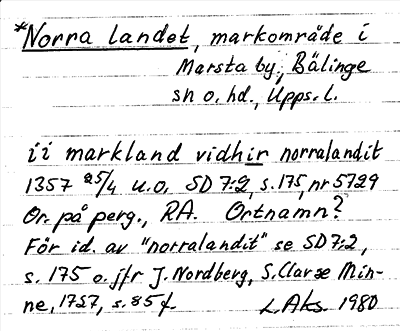 *Norra landet, markområde i
Marsta by, Bälinge
sn o. hd., Upps. l.
ii markland vidhir norralandit
1357 25/4 U.O. SD 7:2, s. 175, nr 5729
Or. på perg., RA. Ortnamn?
För id. av "norralandit" se SD 7:2,
s. 175 o. jfr J. Nordberg, S. Claræ Min-
ne, 1757, s. 85 f. L. Aks. 1980